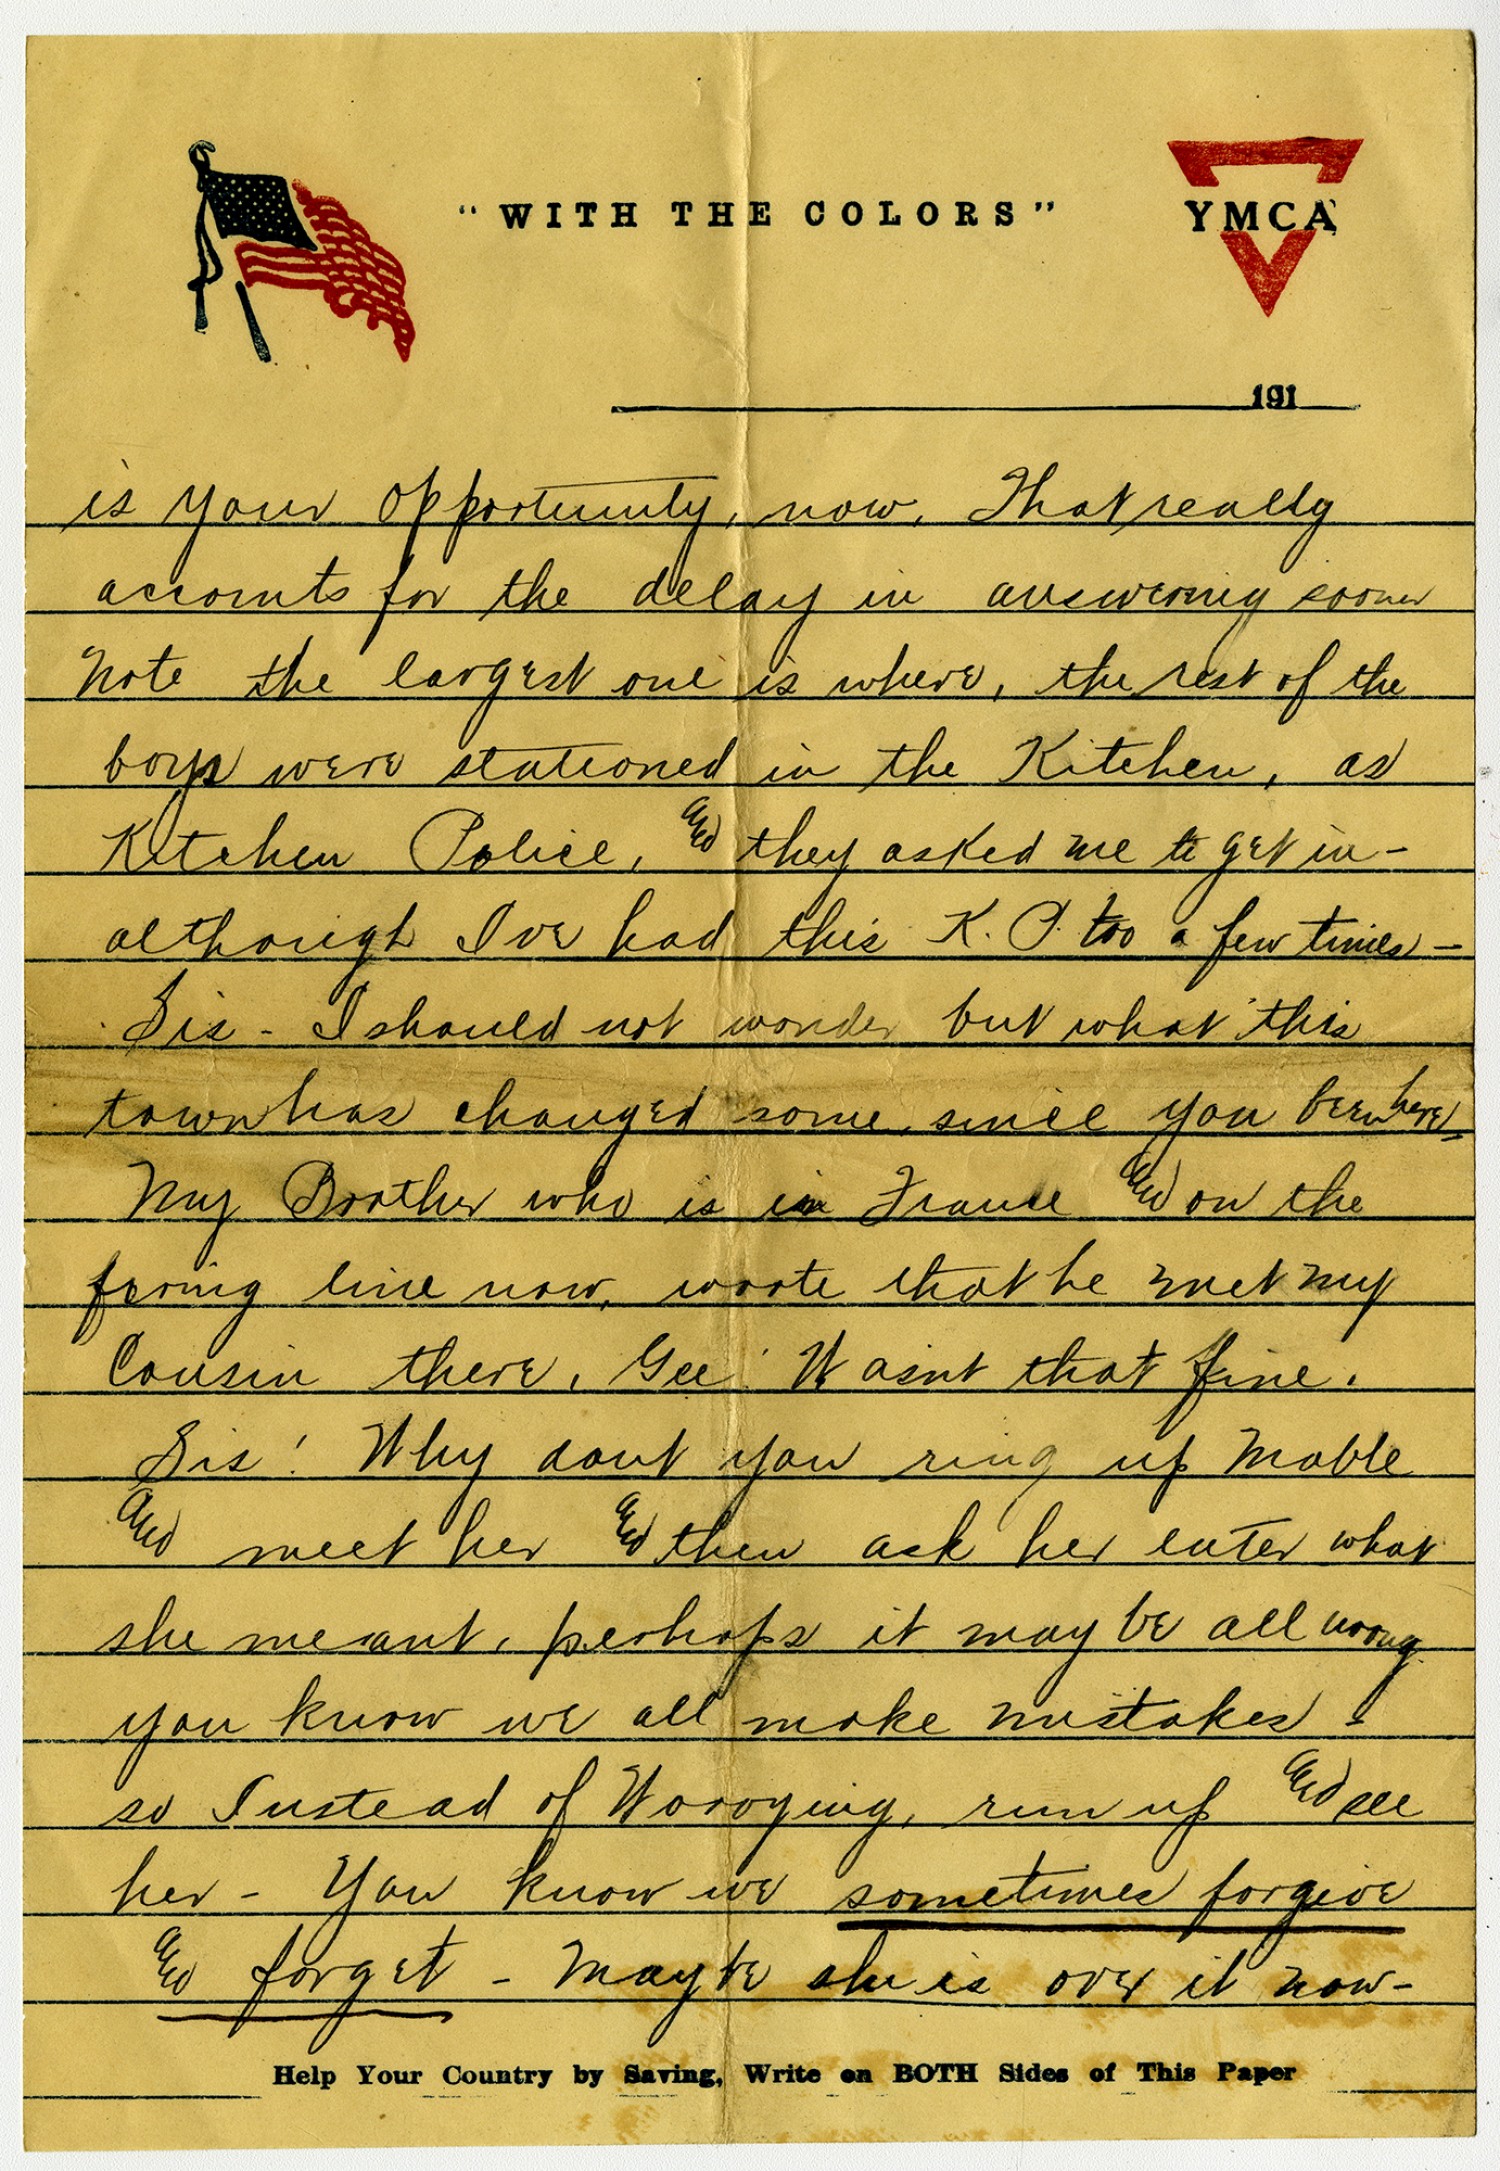 "WITH THE COLORS"
YMCA
191
is your opportunity, now, That really
accounts for the delay in answering sooner
Note the largest one is where, the rest of the
boys were stationed in the Kitchen, as
Kitchen Police, and they asked me to get in-
although I've had this K. P. too a few times-
Sis - I should not wonder but what this
town has changed some, since you been here-
My Brother who is in France and on the
firing line now, wrote that he met my
Cousin there, Gee! Wasnt that fine.
Sis! Why dont you ring up Mable
and meet her and then ask her enter what
she meant, perhaps it may be all wrong
you know we all make mistakes -
so Instead of Worrying, run up and see
her - You know we sometimes forgive
and forget - Maybe she is over it now-
Help Your Country by Saving, Write on BOTH Sides of This Paper